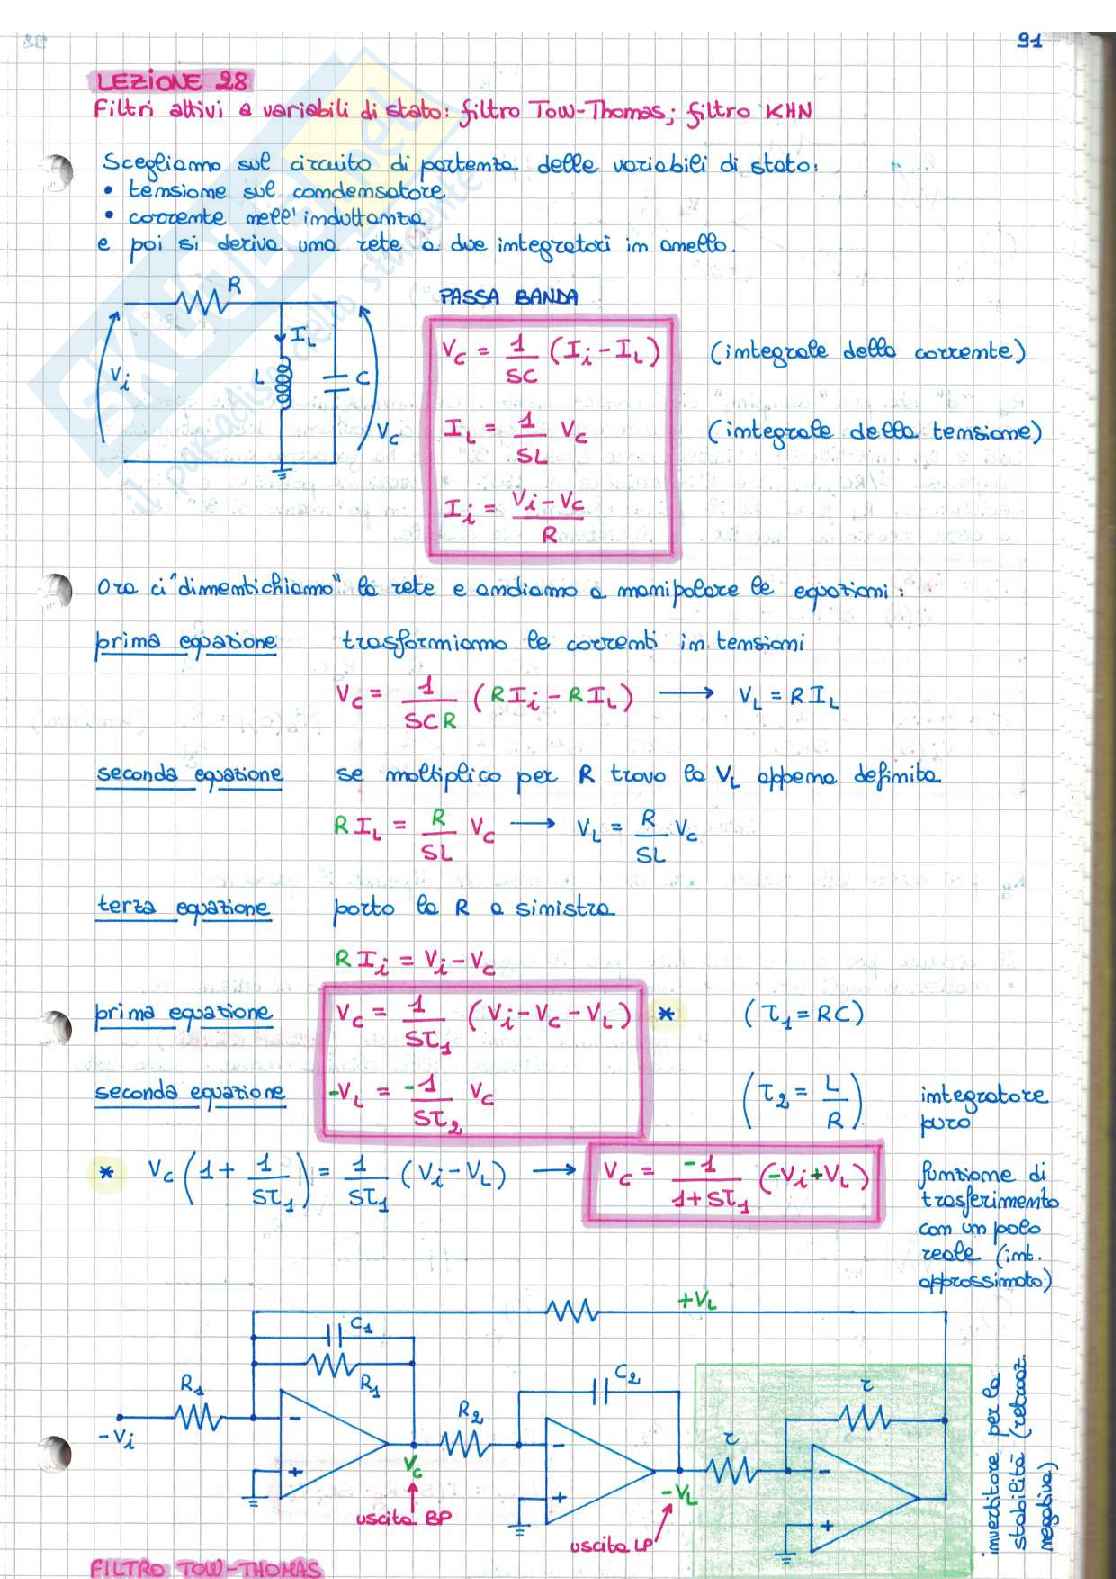 91
LEZIONE 28
Filtri attivi a variabili di stato: filtro Tow-Thomas; filtro KHN
Scegliamo sul circuito di partenza delle variabili di stato:
• tensione sul condensatore
• corrente nell'induttanza
e poi si deriva una rete a due integratori in anello.
R
I_L
L
C
V_i
V_C
PASSA BANDA
V_C = 1/SC (I_i - I_L) (integrale della corrente)
I_L = 1/SL V_C (integrale della tensione)
I_i = (V_i - V_C)/R
Ora ci "dimentichiamo" la rete e andiamo a manipolare le equazioni:
prima equazione trasformiamo le correnti in tensioni
V_C = 1/SCR (RI_i - RI_L) → V_L = RI_L
seconda equazione se moltiplico per R trovo la V_L appena definita
RI_L = R/SL V_C → V_L = R/SL V_C
terza equazione porto la R a sinistra
RI_i = V_i - V_C
prima equazione V_C = 1/Sτ_1 (V_i - V_C - V_L) * (τ_1 = RC)
seconda equazione -V_L = -1/Sτ_2 V_C (τ_2 = L/R) integratore
puro
* V_C (1 + 1/Sτ_1) = 1/Sτ_1 (V_i - V_L) → V_C = -1/(1+Sτ_1) (-V_i + V_L) funzione di
trasferimento
con un polo
reale (int.
approssimato)
+V_L
C_1
R_1
R_1
-V_i
-
+
V_C
uscita BP
R_2
C_2
-
+
-V_L
uscita LP
r
r
-
+
invertitore per la
stabilità (retroaz.
negativa)
FILTRO TOW-THOMAS